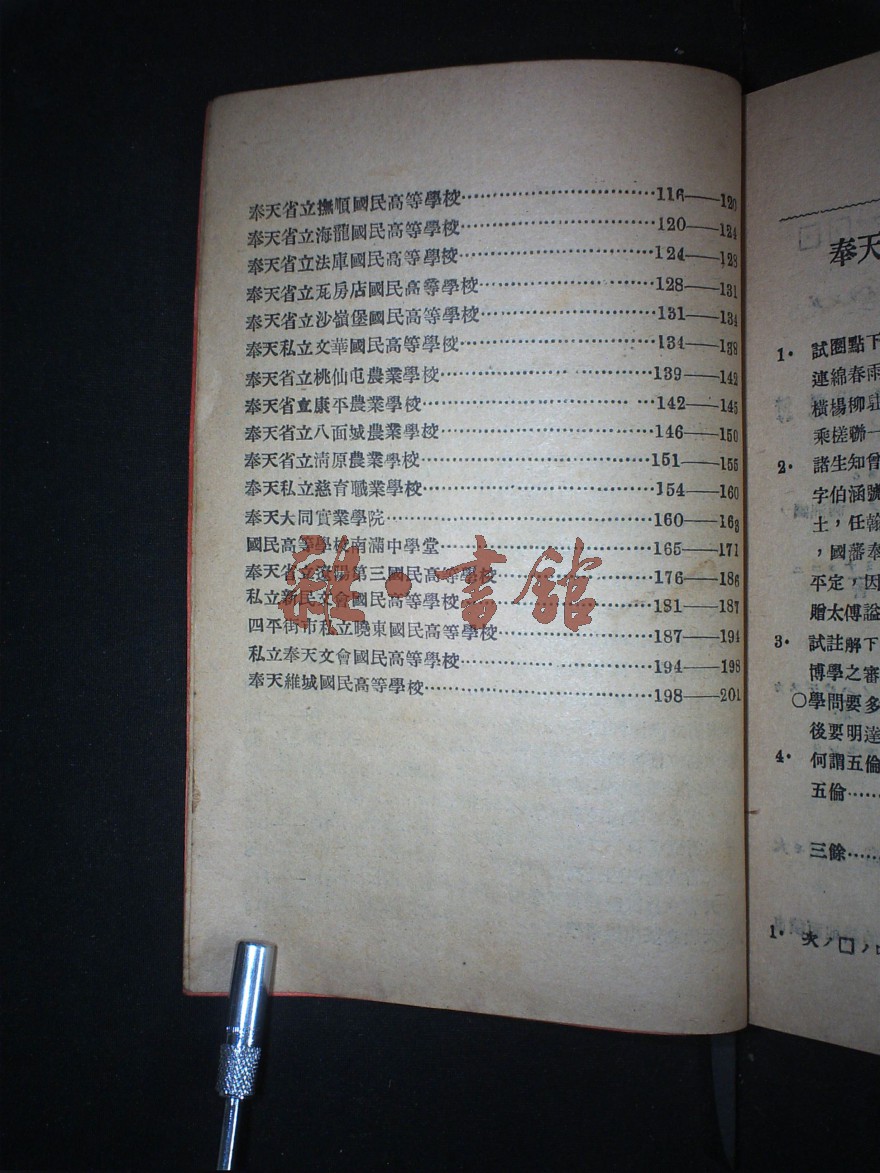 奉天省立撫順國民高等學校…………………………116——120
奉天省立海龍國民高等學校…………………………120——124
奉天省立法庫國民高等學校…………………………124——128
奉天省立瓦房店國民高等學校………………………128——131
奉天省立沙嶺堡國民高等學校………………………131——134
奉天私立文華國民高等學校…………………………134——138
奉天省立桃仙屯農業學校……………………………139——142
奉天省立康平農業學校………………………………142——145
奉天省立八面城農業學校……………………………146——150
奉天省立淸原農業學校………………………………151——155
奉天私立慈育職業學校………………………………154——160
奉天大同實業學院……………………………………160——163
國民高等學校南滿中學堂……………………………165——171
奉天省立遼陽第三國民高等學校……………………176——186
私立新民文會國民高等學校…………………………181——187
四平街市私立曉東國民高等學校……………………187——194
私立奉天文會國民高等學校…………………………194——198
奉天維城國民高等學校………………………………198——201
雜·書館
奉天
1. 試圈點下
連綿春雨
橫楊柳
乘槎聯一
2. 諸生知曾
字伯涵號
士，任翰
，國藩奉
平定，因
贈太傅謚
3. 試註解下
博學之審
○學問要多
後要明達
4. 何謂五倫
五倫……
三餘……
1.